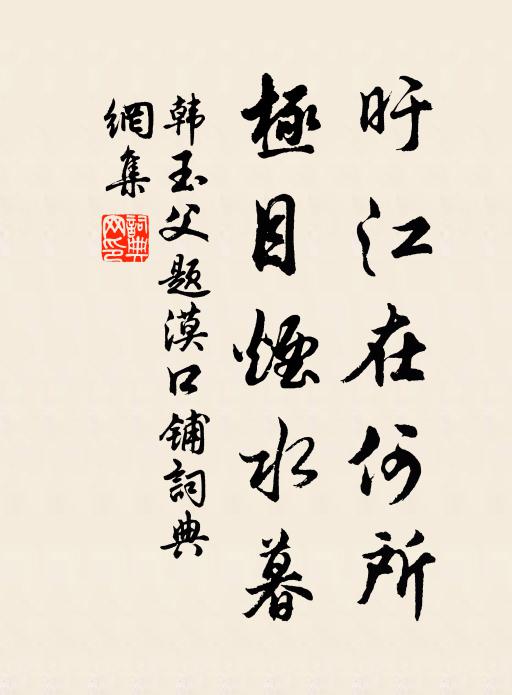 盱江在何所
極目煙水暮
韩玉父题漠口铺詞典
網集
詞典
网印